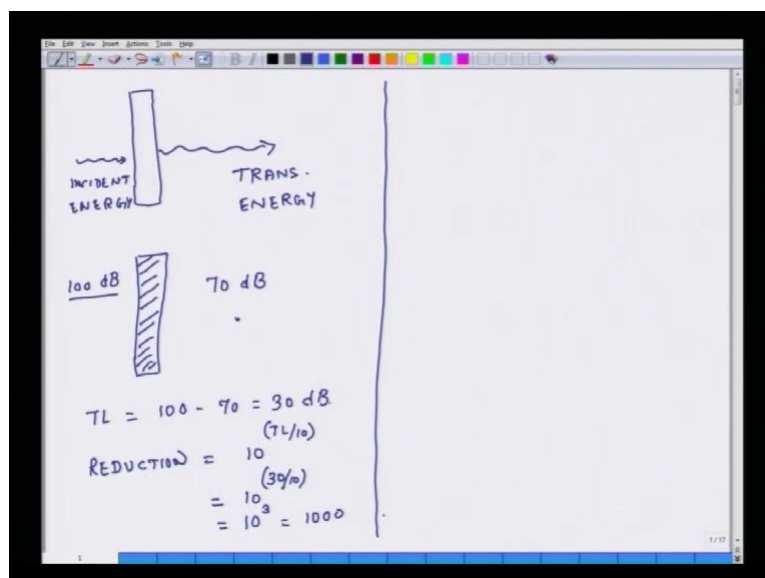 File Edit View Insert Actions Tools Help
B I
INCIDENT
ENERGY
TRANS.
ENERGY
100 dB
70 dB
TL = 100 - 70 = 30 dB
REDUCTION = 10 (TL/10)
= 10 (30/10)
= 10 3 = 1000
1/17
1